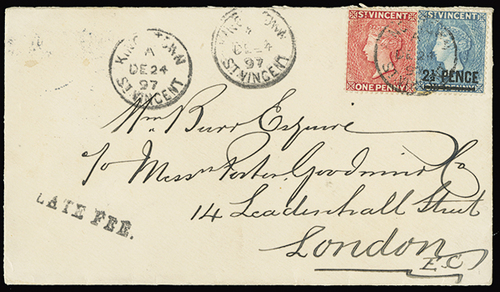 KINGSTOWN
A
DE 24
97
ST VINCENT
KINGSTOWN
A
DE 24
97
ST VINCENT
ST VINCENT
ONE PENNY
ST VINCENT
2½ PENCE
Wm Burr Esquire
c/o Messrs Porter, Goodwin & Co
14 Leadenhall Street
London
E.C.
LATE FEE.